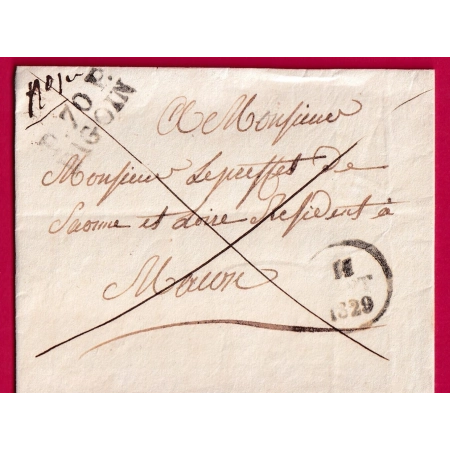 P. 70 P.
DIGOIN
A Monsieur
Monsieur Le preffet de
Saonne et Loire Résident à
Macon
11
1829